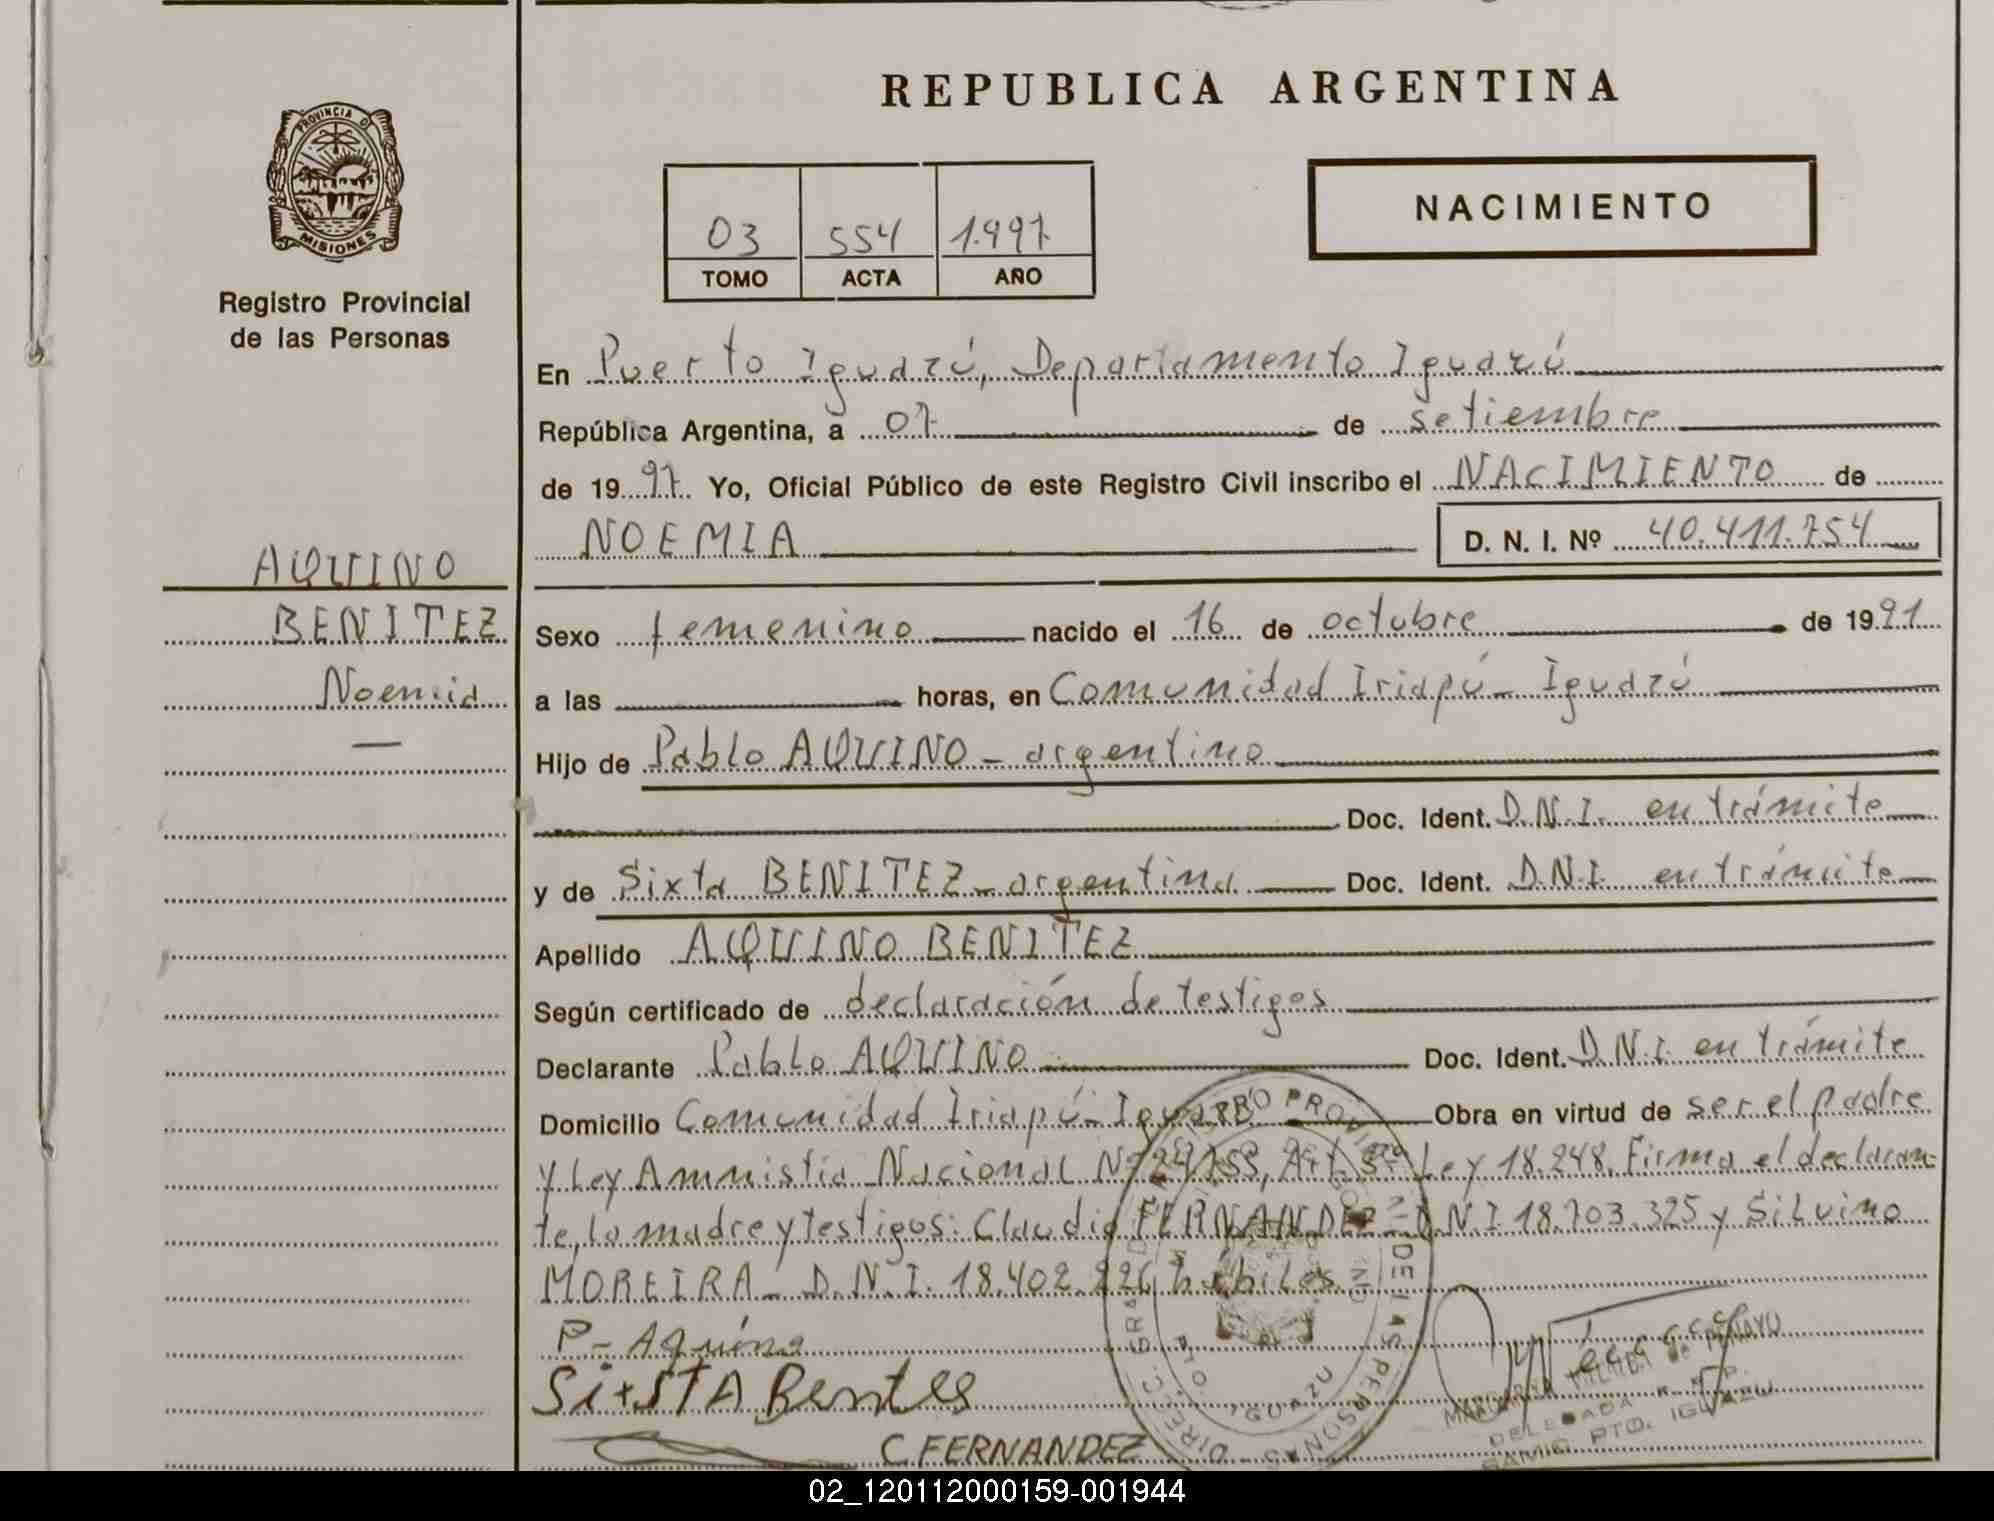 REPUBLICA ARGENTINA
PROVINCIA D
MISIONES
Registro Provincial
de las Personas
NACIMIENTO
03 554 1.997
TOMO ACTA AÑO
En Puerto Iguazú, Departamento Iguazú
República Argentina, a 07 de setiembre
de 1997. Yo, Oficial Público de este Registro Civil inscribo el NACIMIENTO de
NOEMIA D. N. I. Nº 40.411.754
AQUINO
BENITEZ
Noemia
Sexo femenino nacido el 16 de octubre de 1991
a las horas, en Comunidad Iriapú - Iguazú
Hijo de Pablo AQUINO - argentino
Doc. Ident. D.N.I. en trámite
y de Sixta BENITEZ - argentina Doc. Ident. D.N.I. en trámite
Apellido AQUINO BENITEZ
Según certificado de declaración de testigos
Declarante Pablo AQUINO Doc. Ident. D.N.I. en trámite
Domicilio Comunidad Iriapú - Iguazú Obra en virtud de ser el padre
y Ley Amnistía Nacional Nº 24.755, Art. 3º Ley 18.248. Firma el declaran-
te, la madre y testigos: Claudio FERNANDEZ - D.N.I 18.703.325 y Silvino
MOREIRA - D.N.I. 18.402.226 hábiles.
P - Aquino
SixSTA
C. FERNANDEZ
DELEGADA R. P. P.
SAMIC PTO. IGUAZU
02_120112000159-001944